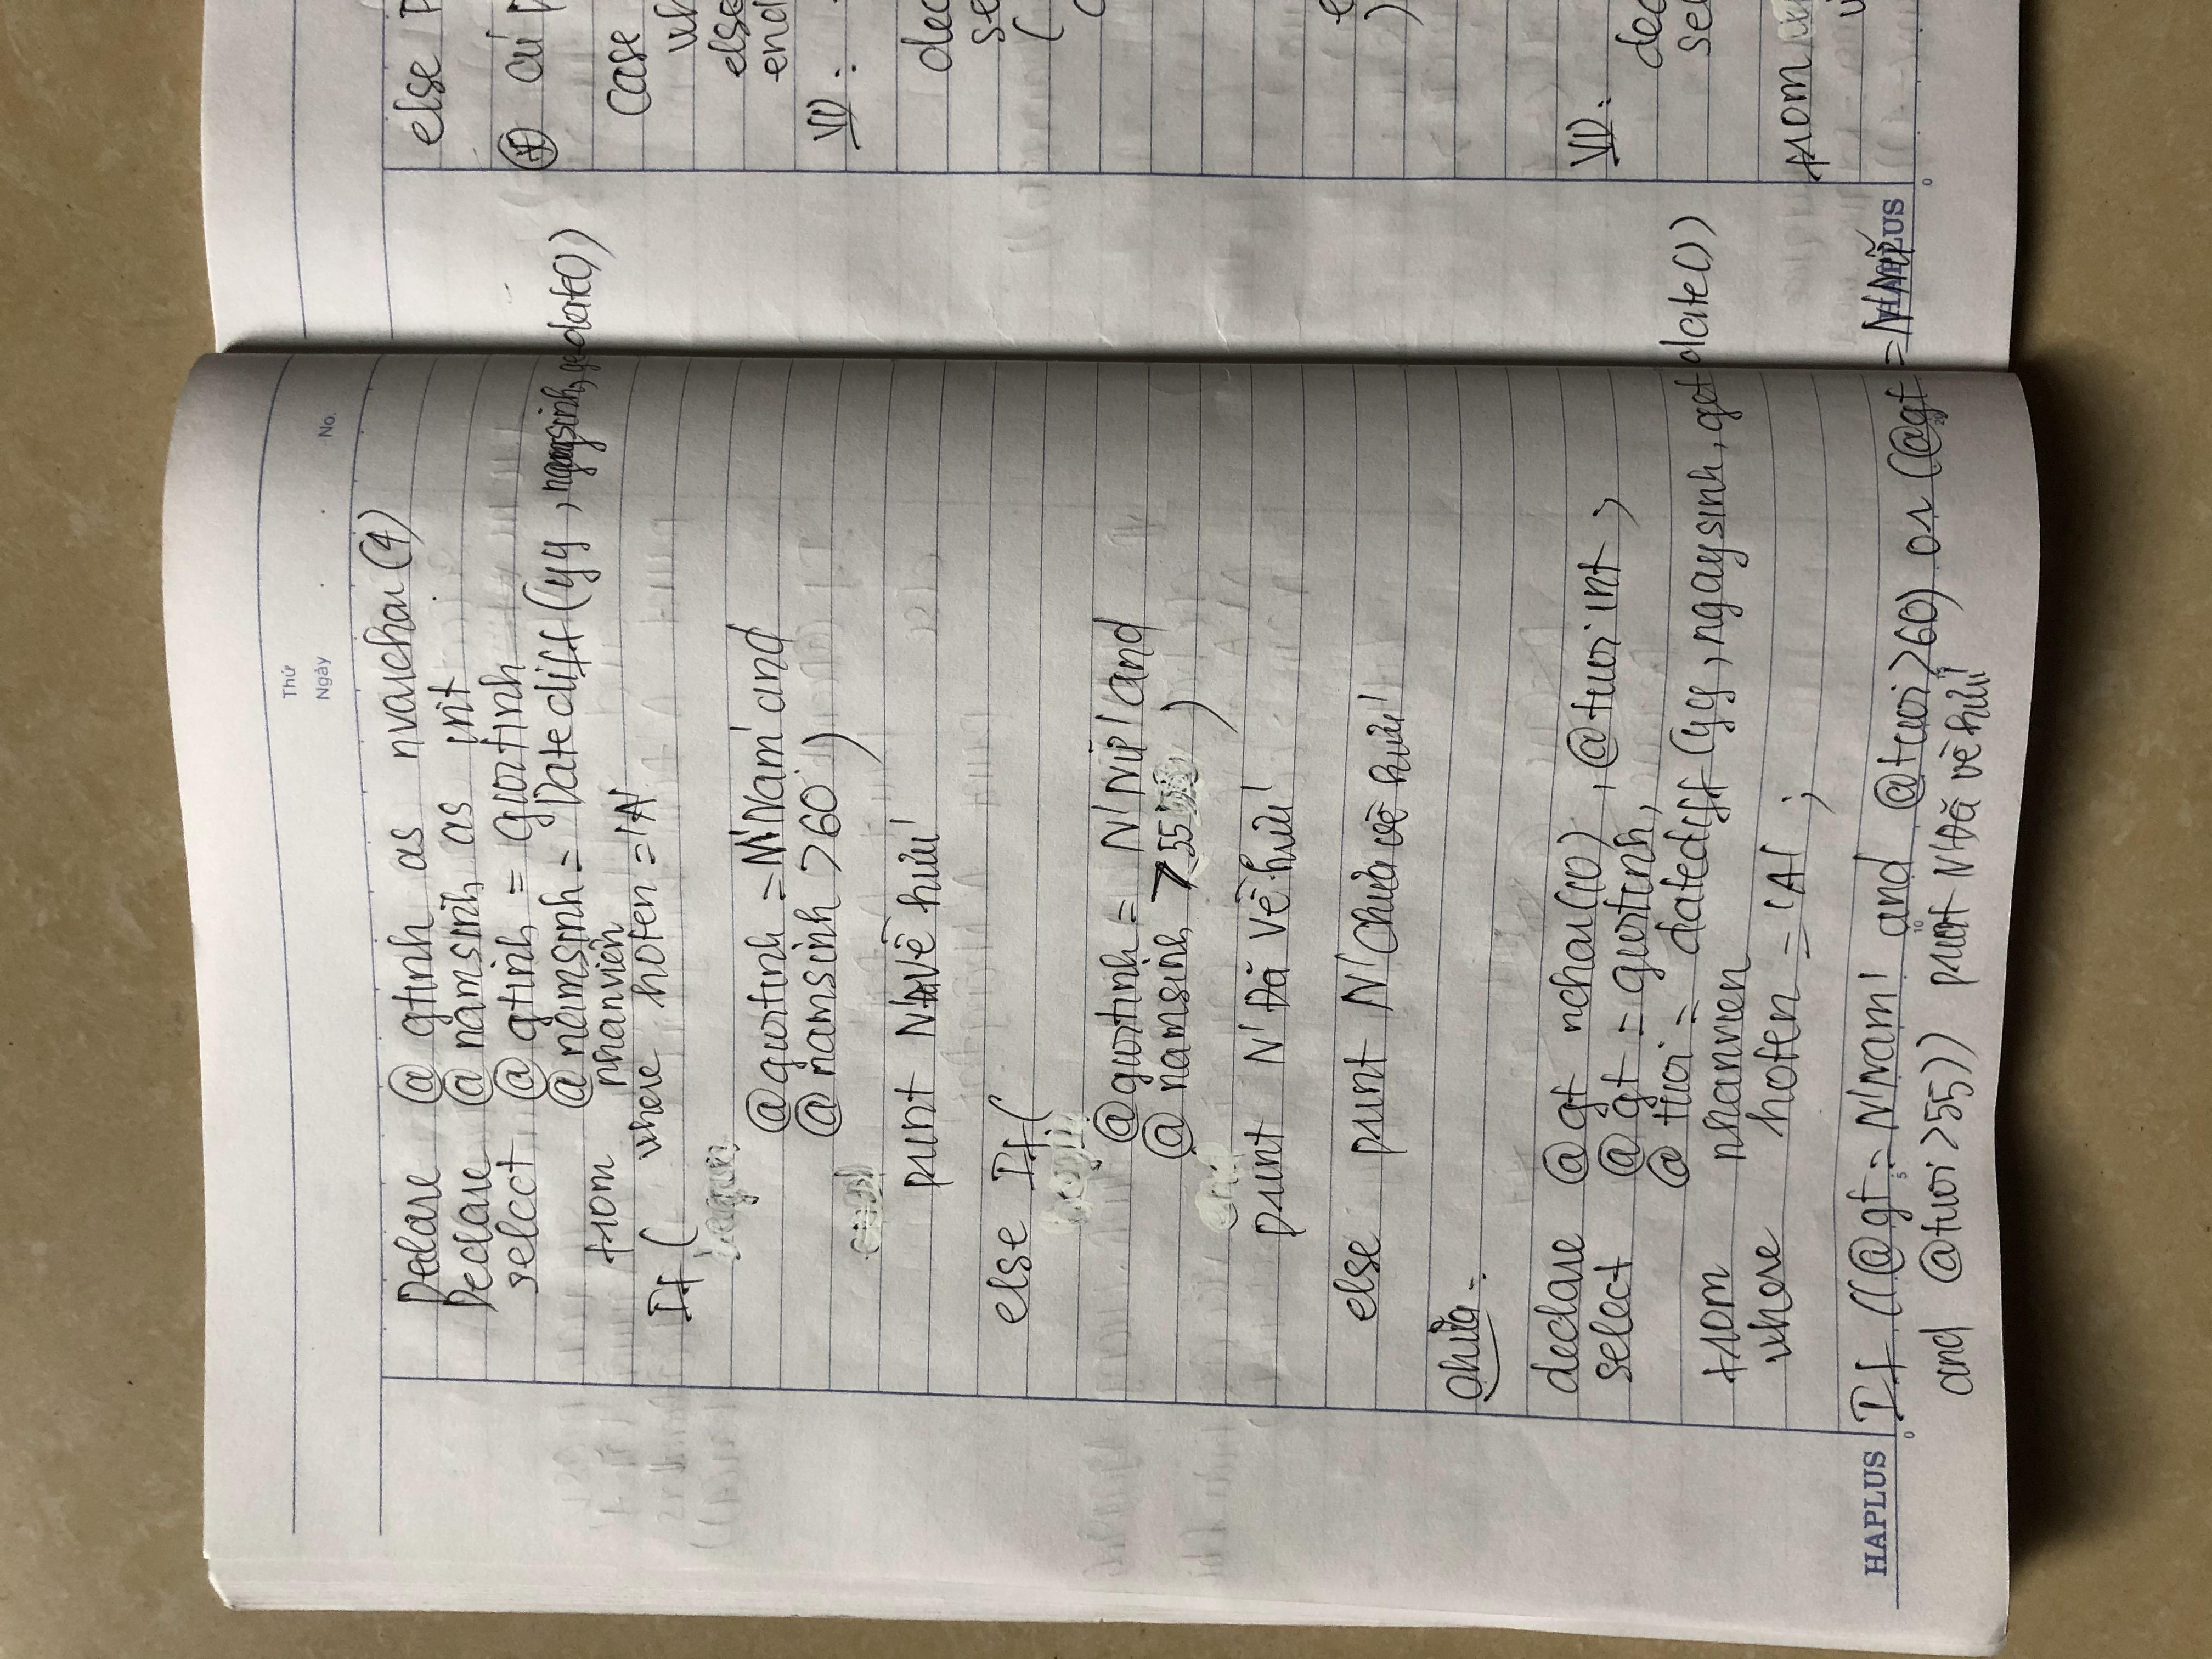 Thứ
Ngày . . No.
Declare @ gtinh as nvarchar(4)
Declare @ namsinh as int
select @ gtinh = gioitinh
@ namsinh = Datediff (yy, ngaysinh, getdate())
from nhanvien
where hoten = 'A'
If (
@gioitinh = N'Nam' and
@ namsinh >60 )
print N'Đã về hưu'
else If (
@gioitinh = N'Nữ' and
@ namsinh >55 )
print N'Đã về hưu'
else print N'Chưa về hưu'
Chữa:
declare @ gt nchar(10) , @tuoi int ;
select @ gt = gioitinh,
@ tuoi = datediff (yy, ngaysinh, getdate())
from nhanvien
where hoten = 'A' ;
If ((@gt = N'Nam' and @tuoi >60) or (@gt = N'Nữ
and @tuoi >55)) print N'Đã về hưu'
HAPLUS
else
Case
else
end
VD:
VD:
from
HAPLUS